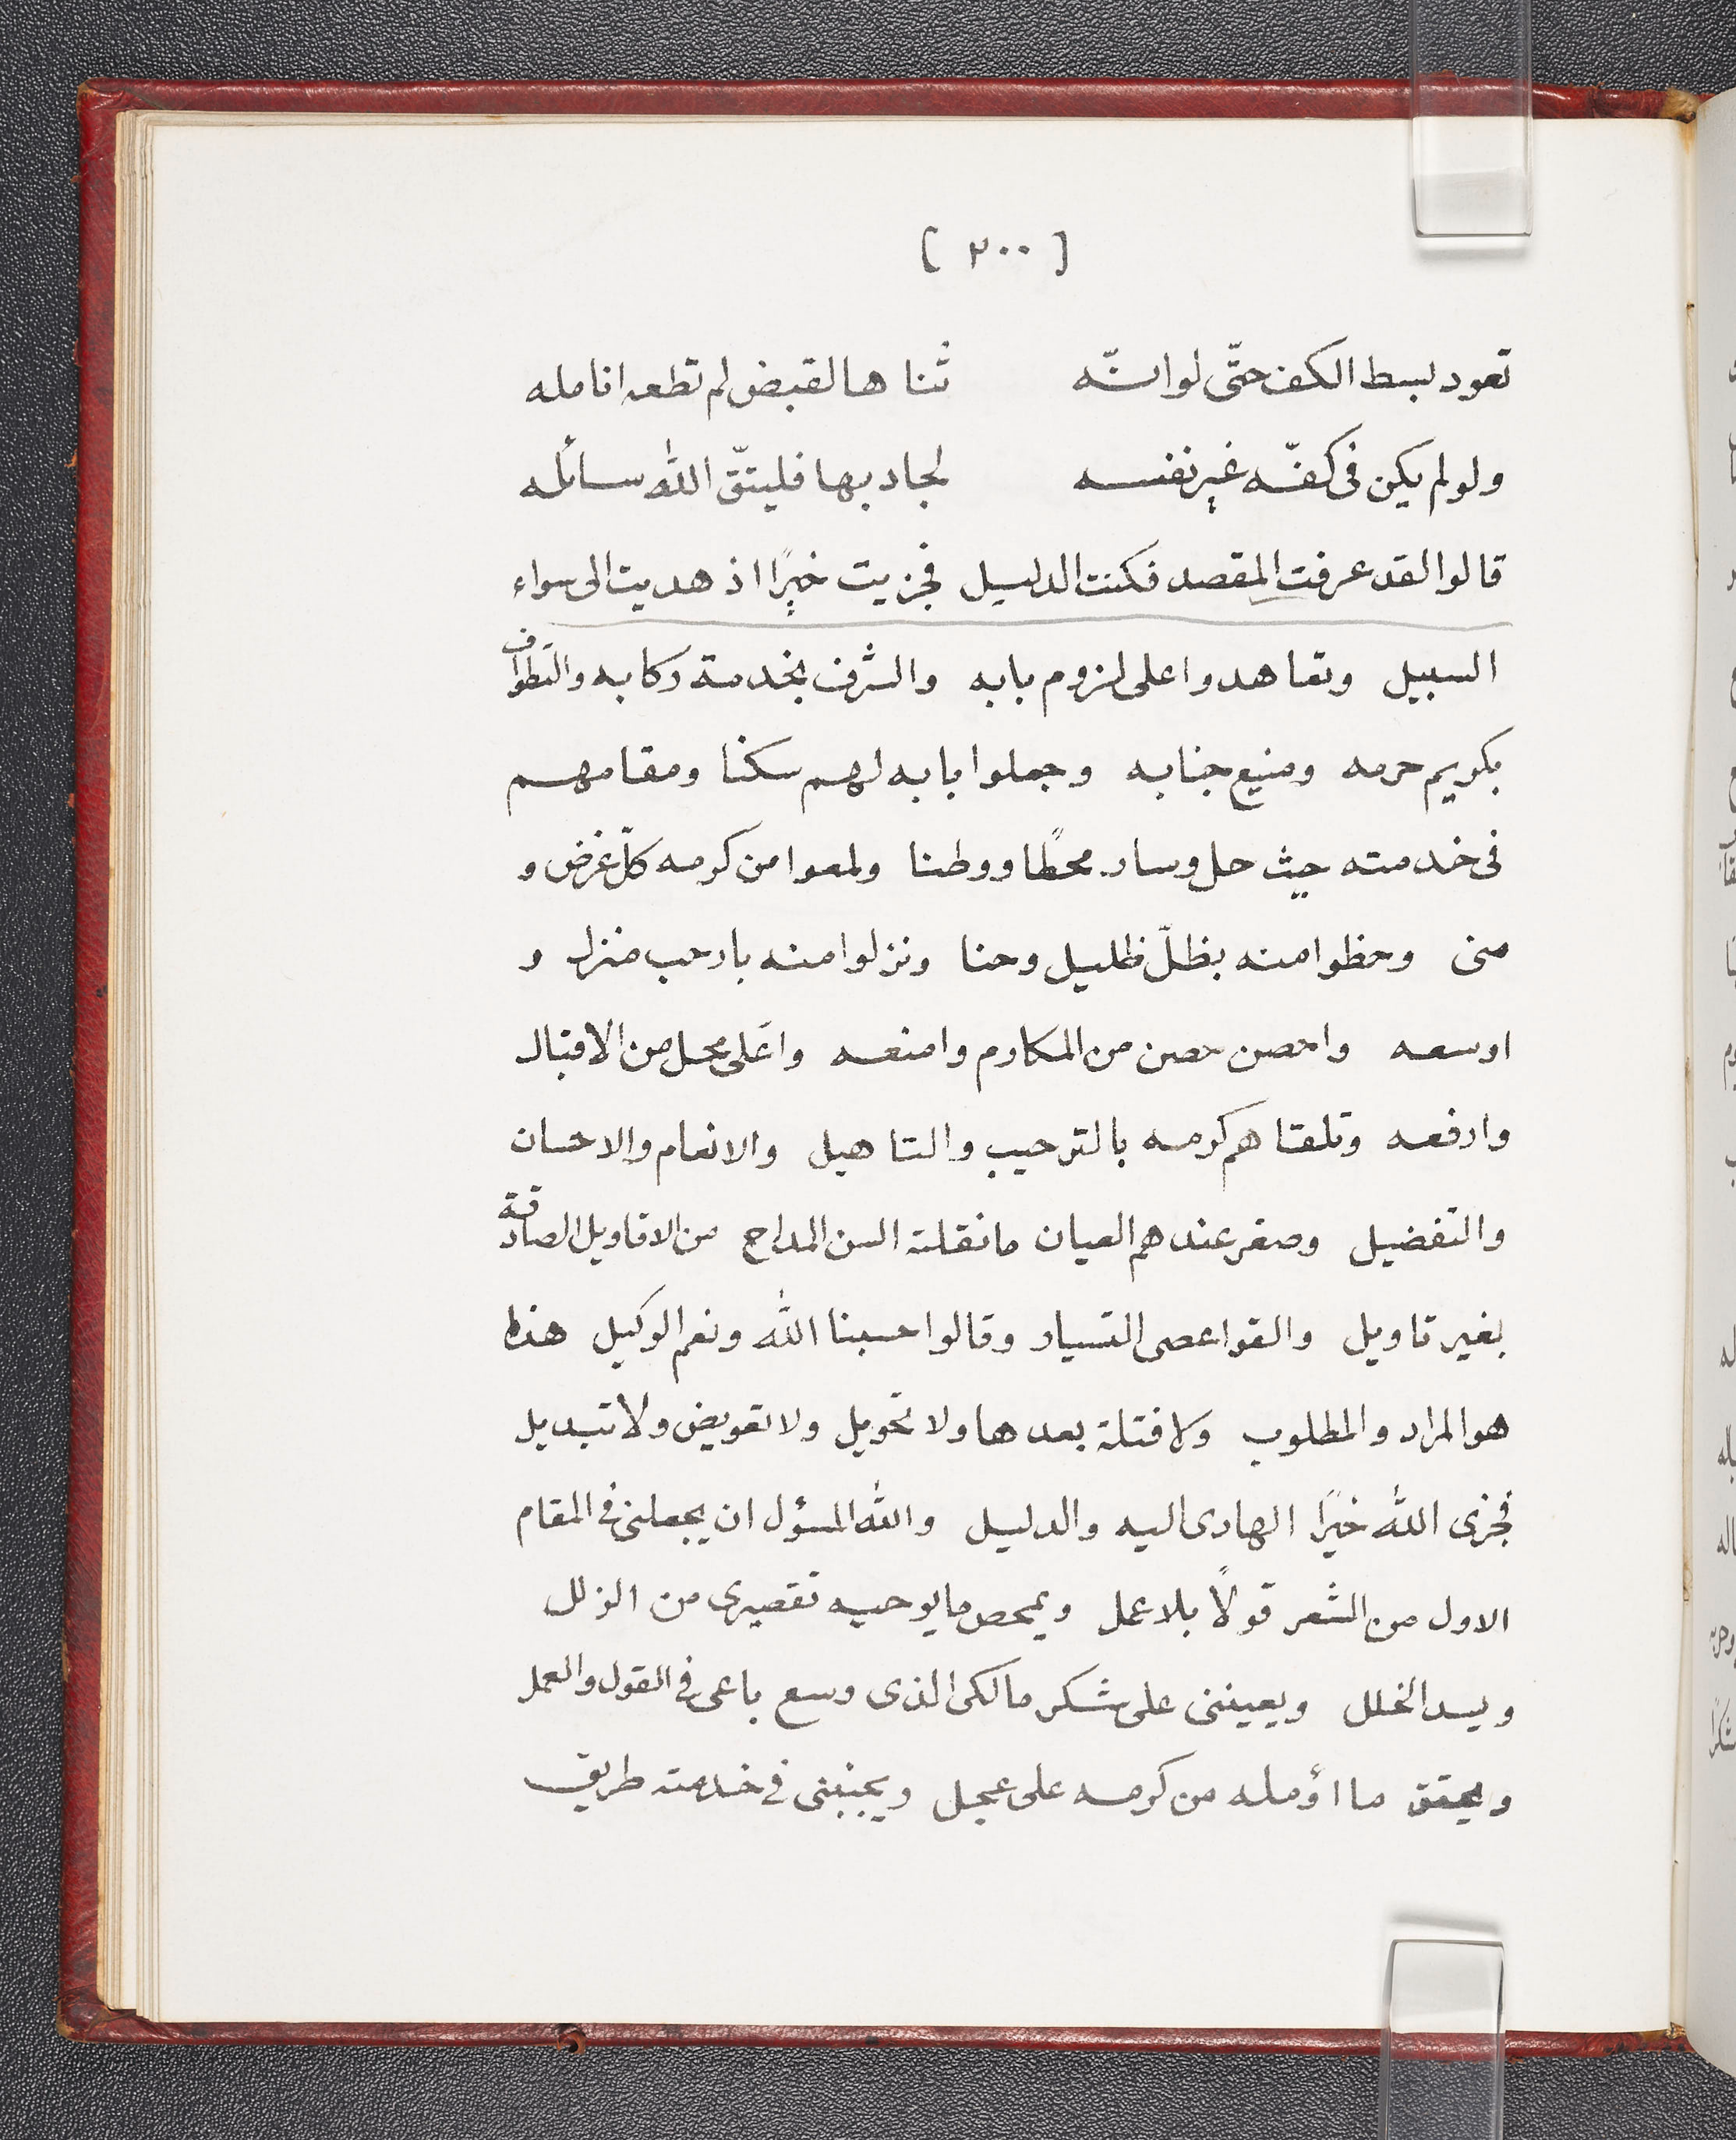 [ ٢٠٠ ]
تعود بسط الكف حتّى لو انّه ثناها لقبض لم تطعه انامله
ولو لم يكن فى كفّه غير نفسه لجاد بها فليتّق الله سائله
قالوا لقد عرفت المقصد فكنت الدليل فجزيت خيرًا اذ هديت الى سواء
السبيل وتعاهدوا على لزوم بابه والشرف بخدمة ركابه والتطواف
بكريم حرمه ومنيع جنابه وجعلوا بابه لهم سكنا ومقامهم
فى خدمته حيث حل وسار محطًا ووطنا ولمعوا من كرمه كلّ غرض و
منى وحظوا منه بظلّ ظليل وحنا ونزلوا منه بارحب منزل و
اوسعه واحصن حصن من المكارم وامنعه واعلى محل من الاقبال
وارفعه وتلقاهم كرمه بالترحيب والتاهيل والانعام والاحسان
والتفضيل وصغر عندهم العيان ما نقلته السن المداح من الاقاويل الصادقة
بغير تاويل والقوا عصى التسيار وقالوا حسبنا الله ونعم الوكيل هذا
هو المراد والمطلوب ولا فتلة بعدها ولا تحويل ولا تعويض ولا تبديل
فجزى الله خيرًا الهادى اليه والدليل والله المسؤل ان يجعلنى فى المقام
الاول من الشعر قولًا بلا عمل ويمحص ما يوحيه تقصيرى من الزلل
ويسد الخلل ويعيننى على شكر مالكى الذى وسع باعى فى القول والعمل
ويحقق ما اؤمله من كرمه على عجل ويجنبنى فى خدمته طريق